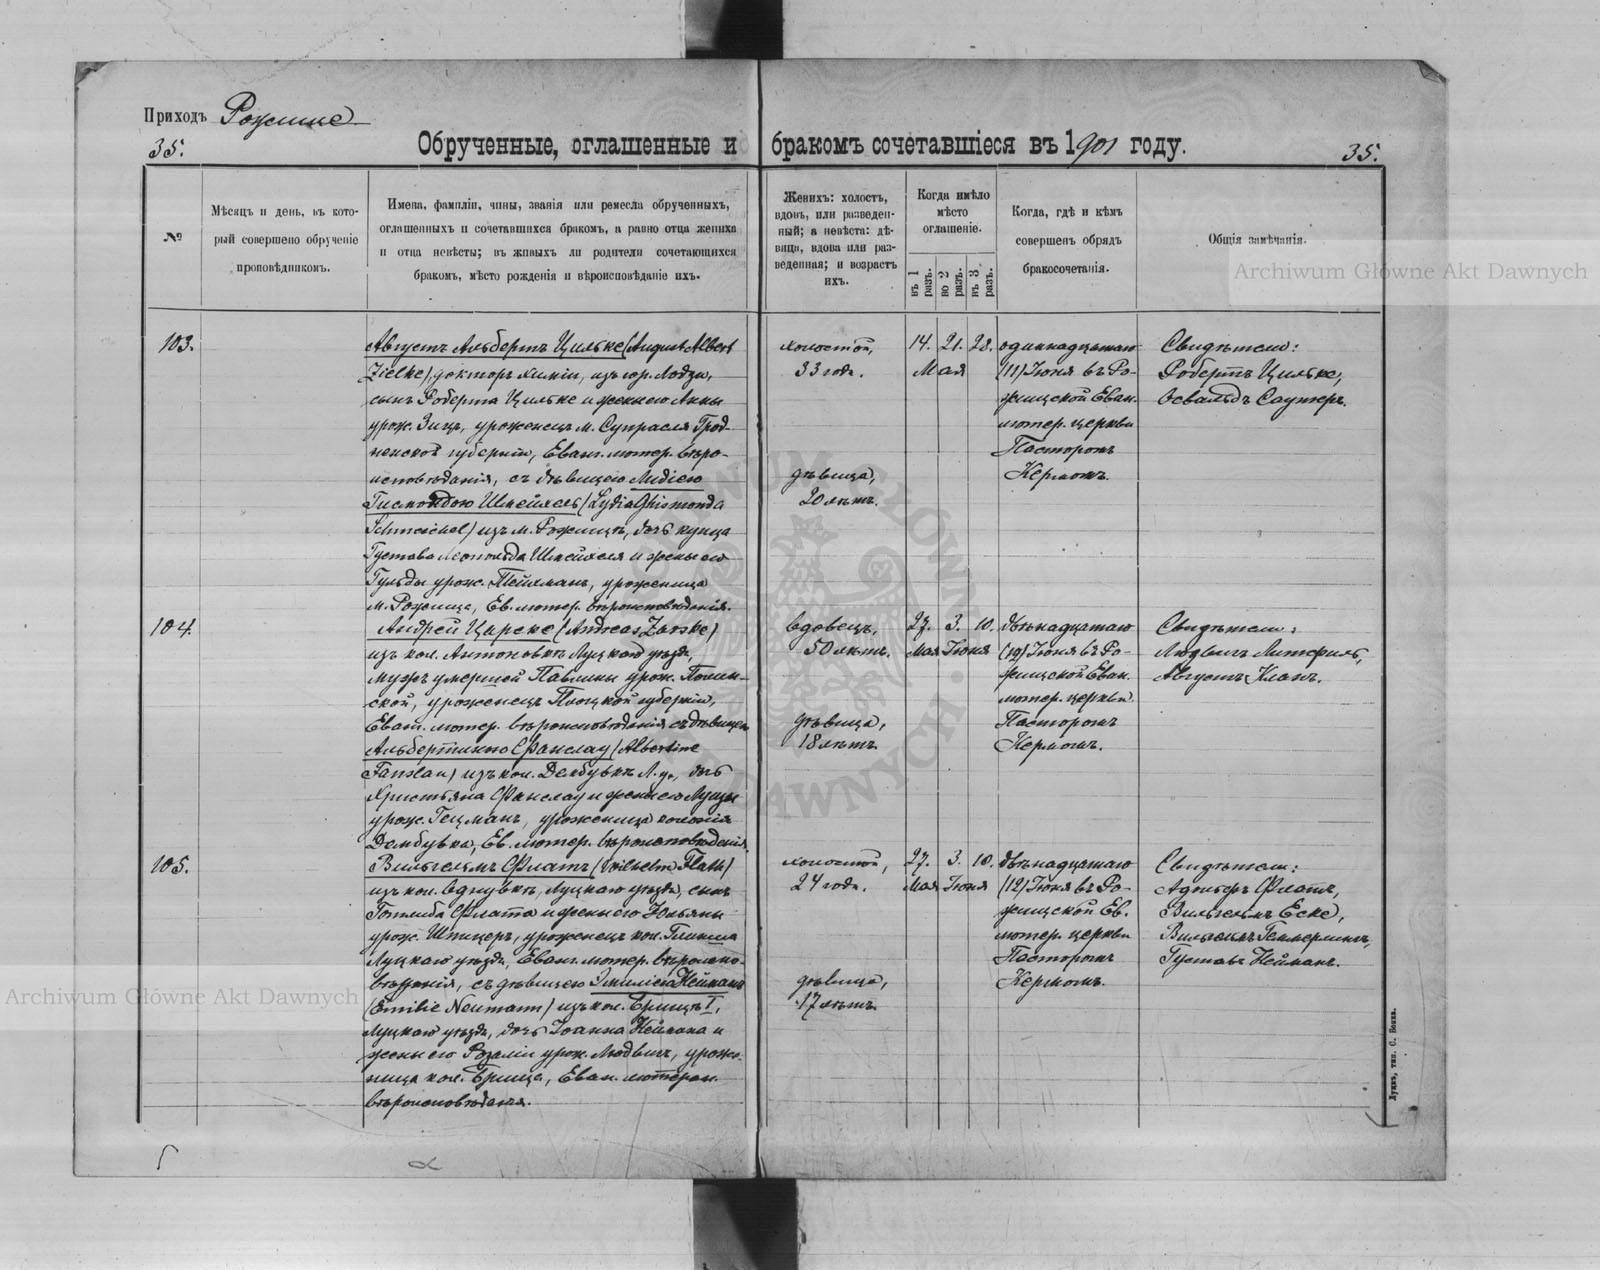 Приходъ Рожище
35.
Обрученные, оглашенные и бракомъ сочетавшіеся въ 1901 году.
35.
№
Мѣсяцъ и день, въ кото-
рый совершено обрученіе
проповѣдникомъ.
Имена, фамиліи, чины, званія или ремесла обрученныхъ,
оглашенныхъ и сочетавшихся бракомъ, а равно отца жениха
и отца невѣсты; въ живыхъ ли родители сочетающихся
бракомъ, мѣсто рожденія и вѣроисповѣданіе ихъ.
Женихъ: холостъ,
вдовъ, или разведен-
ный; а невѣста: дѣ-
вица, вдова или раз-
веденная; и возрастъ
ихъ.
Когда имѣло
мѣсто
оглашеніе.
въ 1 разъ.
во 2 разъ.
въ 3 разъ.
Когда, гдѣ и кѣмъ
совершенъ обрядъ
бракосочетанія.
Общія замѣчанія.
Archiwum Główne Akt Dawnych
103.
Августъ Альбертъ Цильке (August Albert
Zielke), докторъ химіи, изъ гор. Лодзи,
сынъ Роберта Цильке и жены его Анны
урож. Зицъ, уроженецъ м. Супрасля Грод-
ненской губерніи, Еванг. лютер. вѣро-
исповѣданія, съ дѣвицею Лидіею
Гисмондою Шмейхель (Lydia Ghismonda
Schmeichel) изъ м. Рожищъ, дочь купца
Густава Леопольда Шмейхеля и жены его
Гульды урож. Тейхманъ, уроженица
м. Рожища, Ев. лютер. вѣроисповѣданія.
холостой,
33 года.
дѣвица,
20 лѣтъ.
14. 21. 28.
Мая
одиннадцатаго
(11) Іюня въ Ро-
жищской Еван.
лютер. церкви
Пасторомъ
Кермомъ.
Свидѣтели:
Робертъ Цильке,
Освальдъ Саутеръ.
104.
Андрей Царске (Andreas Zarske)
изъ кол. Антоновки Луцкаго уѣзда,
мужъ умершей Павлины урож. Полин-
ской, уроженецъ Плоцкой губерніи,
Еванг. лютер. вѣроисповѣданія съ дѣвицею
Альбертиною Фанслау (Albertine
Fanslau) изъ кол. Дембувки Л. у., дочь
Христьяна Фанслау и жены его Луизы
урож. Гецманъ, уроженица колоніи
Дембувка, Ев. лютер. вѣроисповѣданія.
вдовецъ,
50 лѣтъ.
дѣвица,
18 лѣтъ.
27. 3. 10.
Мая Іюня
двѣнадцатаго
(12) Іюня въ Ро-
жищской Еван.
лютер. церкви
Пасторомъ
Кермомъ.
Свидѣтели:
Августъ Кланъ.
105.
Вильгельмъ Флатъ (Wilhelm Flath)
изъ кол. Луцкаго уѣзда, сынъ
Готлиба Флата и жены его Юльяны
урож. Шпицеръ, уроженецъ кол.
Луцкаго уѣзда, Еванг. лютер. вѣроиспо-
вѣданія, съ дѣвицею Эмиліею Нейманъ
(Emilie Neumann) изъ кол. Брищъ I,
Луцкаго уѣзда, дочь Іоанна Неймана и
жены его Розаліи урож. Людвигъ, уроже-
ница кол. Брища, Еван. лютеран.
вѣроисповѣданія.
холостой,
24 года.
дѣвица,
17 лѣтъ.
27. 3. 10.
Мая Іюня
двѣнадцатаго
(12) Іюня въ Ро-
жищской Ев.
лютер. церкви
Пасторомъ
Кермомъ.
Свидѣтели:
Адольфъ Флатъ,
Вильгельмъ Еске,
Вильгельмъ Геммерлингъ,
Густавъ Нейманъ.
Archiwum Główne Akt Dawnych
Луцкъ, тип. С. Бокка.